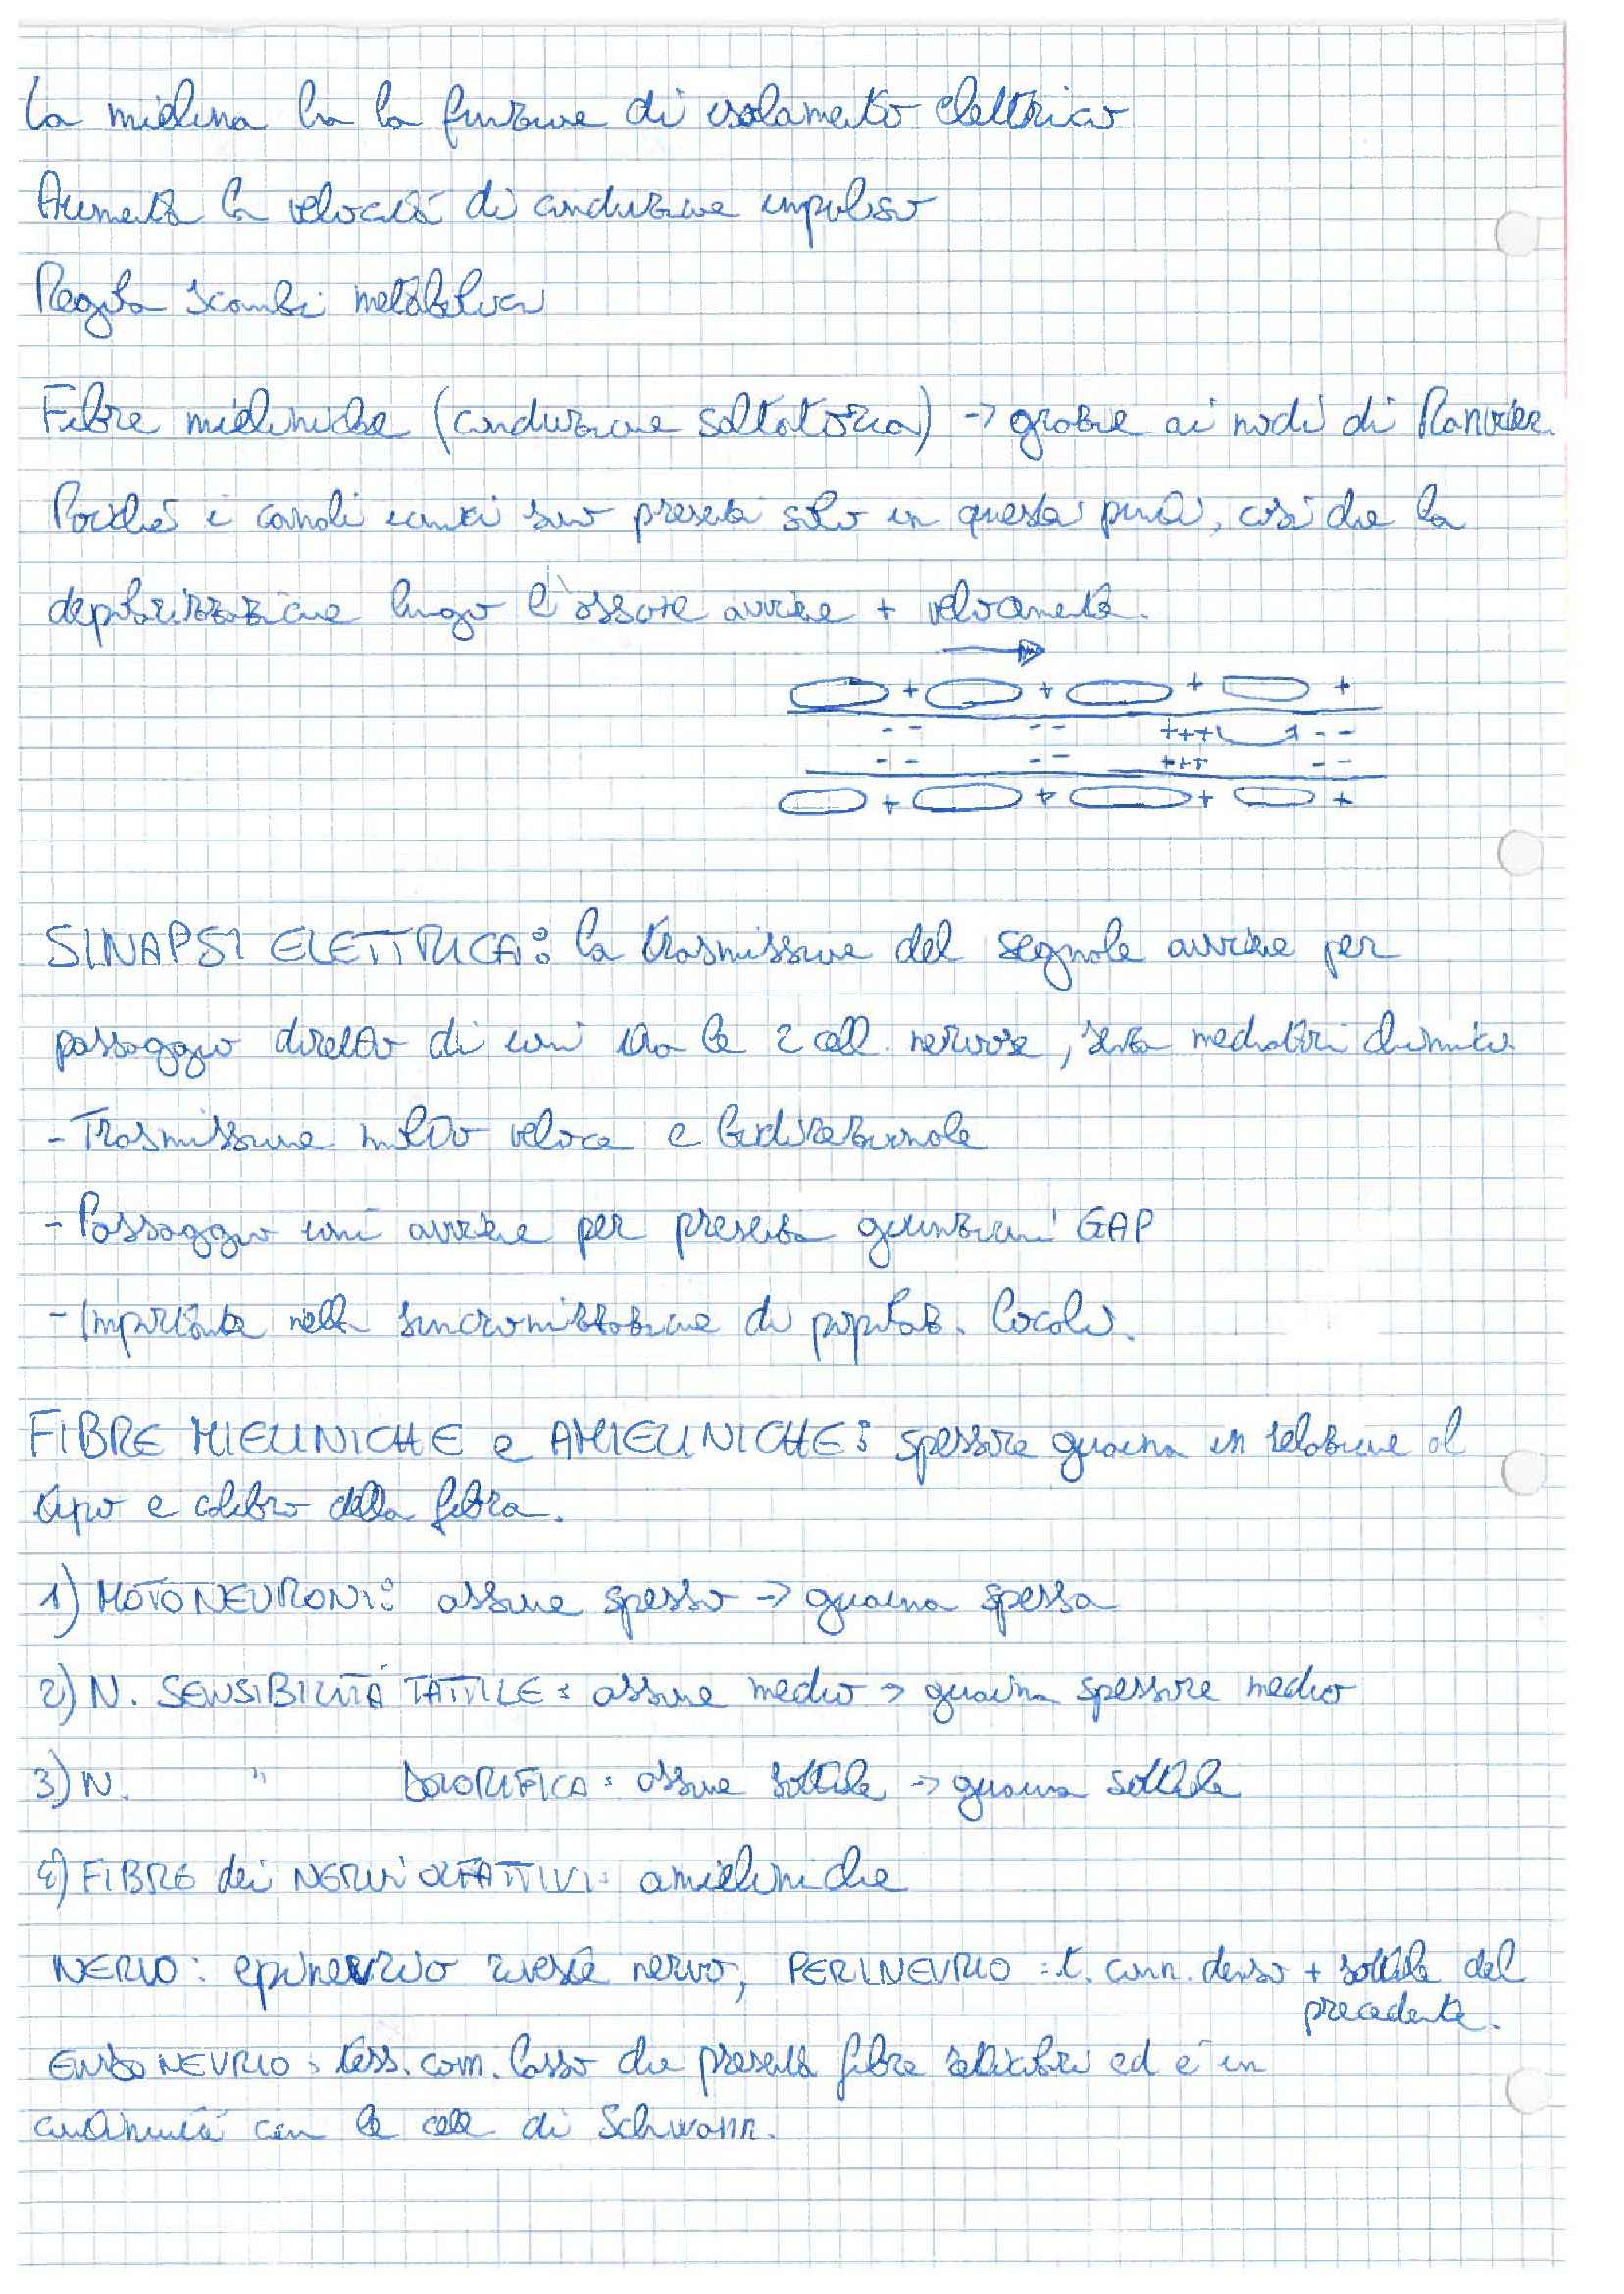 La mielina ha la funzione di isolamento elettrico
Aumenta la velocità di conduzione impulso
Regola scambi metabolici
Fibre mieliniche (conduzione saltatoria) -> grazie ai nodi di Ranvier.
Poiché i canali ionici sono presenti solo in questi punti, così che la
depolarizzazione lungo l'assone avviene + velocemente.
+ + + +
-- -- +++ --
-- -- +++ --
+ + + +
SINAPSI ELETTRICA: la trasmissione del segnale avviene per
passaggio diretto di ioni tra le 2 cell. nervose, senza mediatori chimici
- Trasmissione molto veloce e bidirezionale
- Passaggio ioni avviene per presenza giunzioni GAP
- Importante nella sincronizzazione di popolaz. locali.
FIBRE MIELINICHE e AMIELINICHE: spessore guaina in relazione al
tipo e calibro della fibra.
1) MOTONEURONI: assone spesso -> guaina spessa
2) N. SENSIBILITÁ TATTILE: assone medio -> guaina spessore medio
3) N. " DOLORIFICA: assone sottile -> guaina sottile
4) FIBRE dei NERVI OLFATTIVI: amieliniche
NERVO: epinevrio riveste nervo, PERINEVRIO: t. conn. denso + sottile del
precedente.
ENDONEVRIO: tess. conn. lasso che presenta fibre reticolari ed è in
continuità con le cell di Schwann.